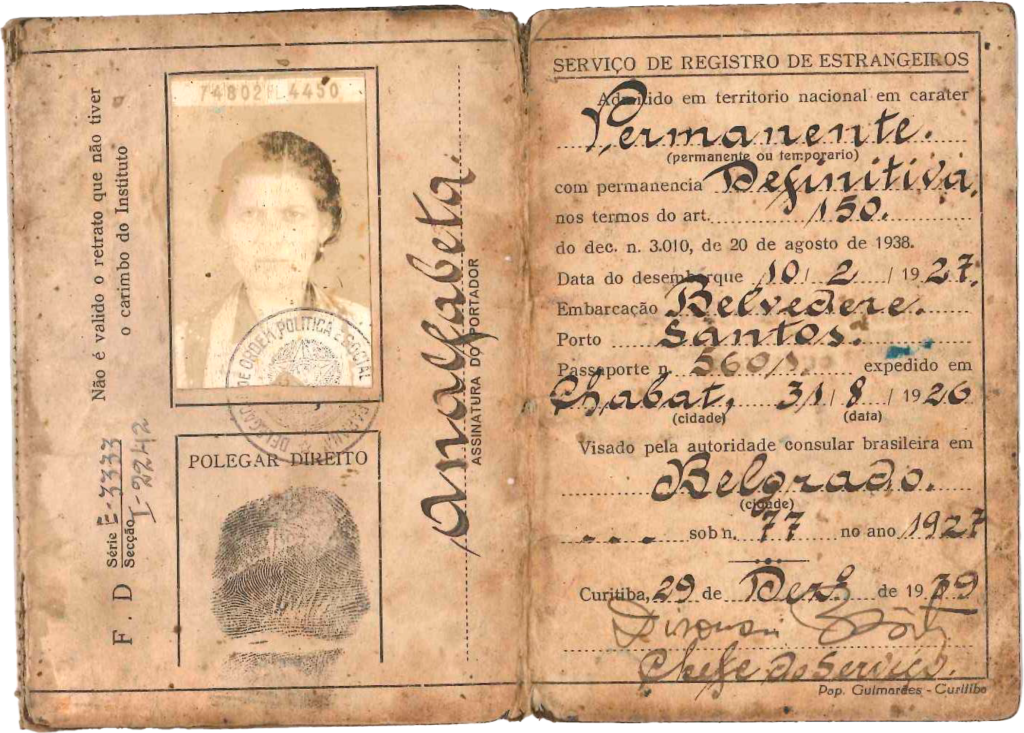 Não é valido o retrato que não tiver
o carimbo do Instituto
F. D
Série E-3333
Secção I-2242
74802 PL.4450
DE ORDEM POLITICA E SOCIAL
POLEGAR DIREITO
Analfabeta
ASSINATURA DO PORTADOR
SERVIÇO DE REGISTRO DE ESTRANGEIROS
Admitido em territorio nacional em carater
Permanente.
(permanente ou temporario)
com permanencia Definitiva,
nos termos do art. 150.
do dec. n. 3.010, de 20 de agosto de 1938.
Data do desembarque 10/ 2 / 1927.
Embarcação Belvedere.
Porto Santos.
Passaporte n. 560/ expedido em
Chabat, 31/ 8 / 1926
(cidade) (data)
Visado pela autoridade consular brasileira em
Belgrado.
(cidade)
sob n. 77 no ano 1927
Curitiba, 29 de Dez. de 1939
Chefe do Serviço.
Pap. Guimarães - Curitiba